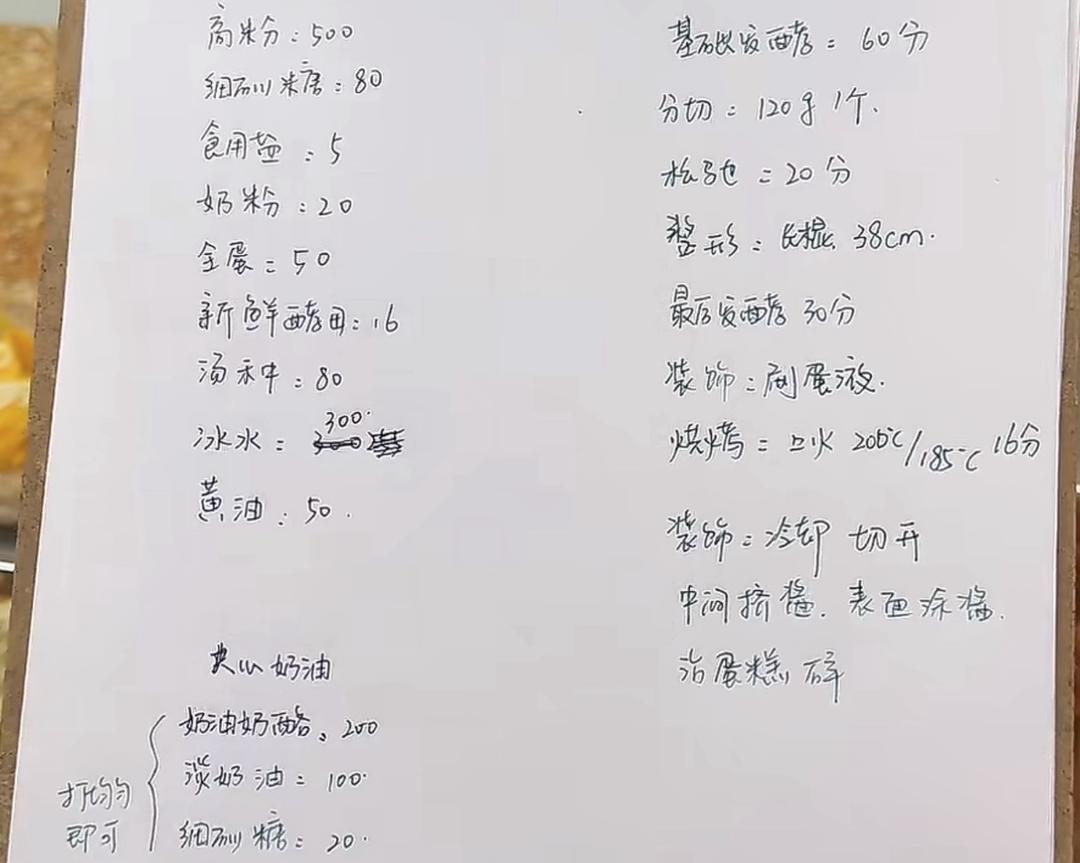 高粉：500
细砂糖：80
食用盐：5
奶粉：20
全蛋：50
新鲜酵母：16
汤种：80
冰水：300
黄油：50.
夹心奶油
奶油奶酪、200
淡奶油：100.
细砂糖：20.
打均匀
即可
基础发酵：60分
分切：120g 1个.
松弛：20分
整形：长棍 38cm.
最后发酵 30分
装饰：刷蛋液.
烘烤：上火 200℃/185℃ 16分
装饰：冷却 切开
中间挤酱.表面涂酱.
沾蛋糕碎